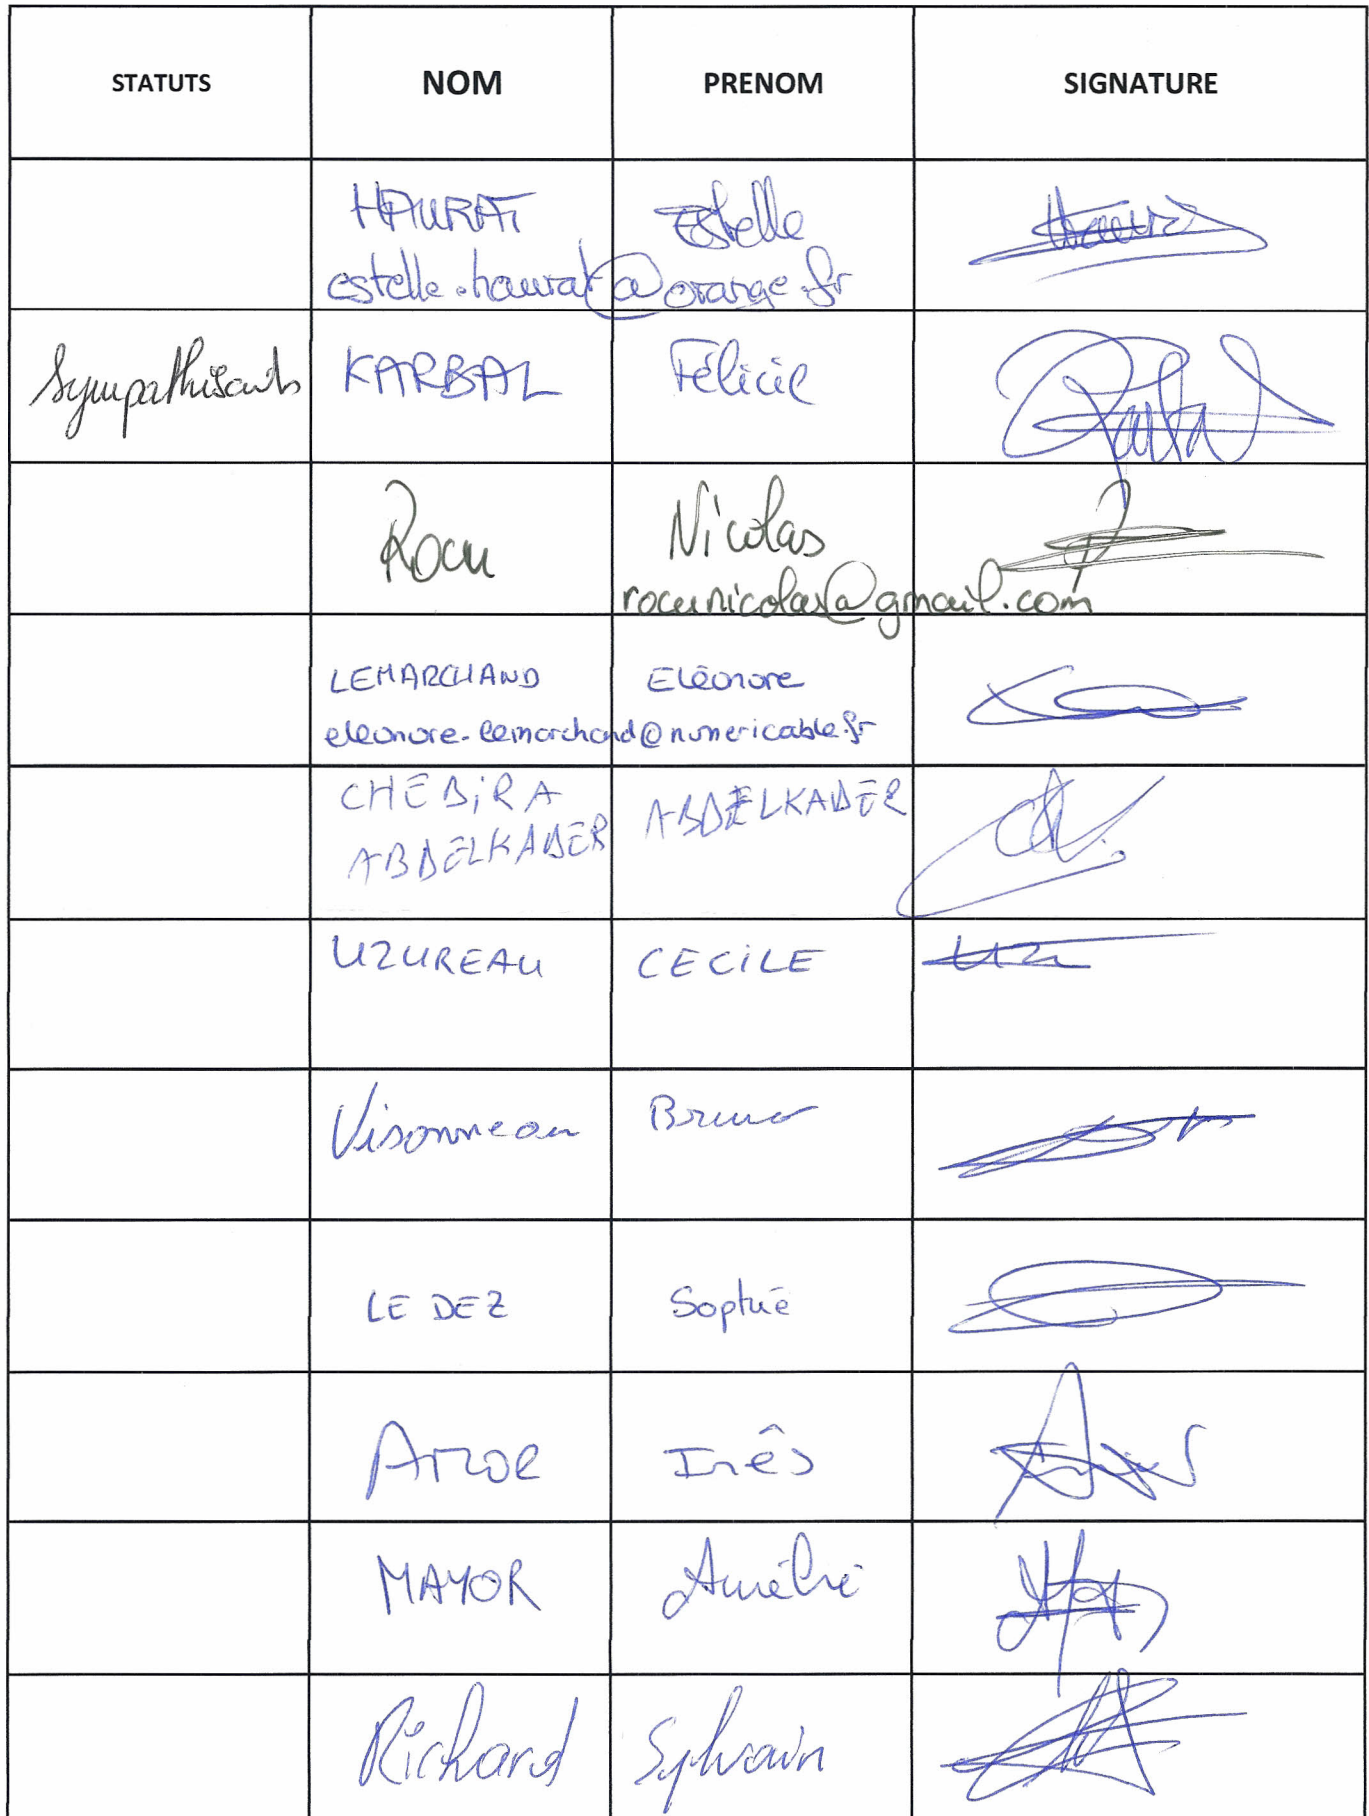 STATUTS NOM PRENOM SIGNATURE
HAURAT Estelle
estelle.haurat@orange.fr
Sympathisants KARBAL Félicie
Rocu Nicolas
rocunicolas@gmail.com
LEMARCHAND Eléonore
eleonore.lemarchand@numericable.fr
CHEBiRA ABDELKADER
ABDELKADER
UZUREAU CECiLE
Visonneau Bruno
LE DEZ Sophie
Inês
MAYOR Aurélie
Richard Sylvain